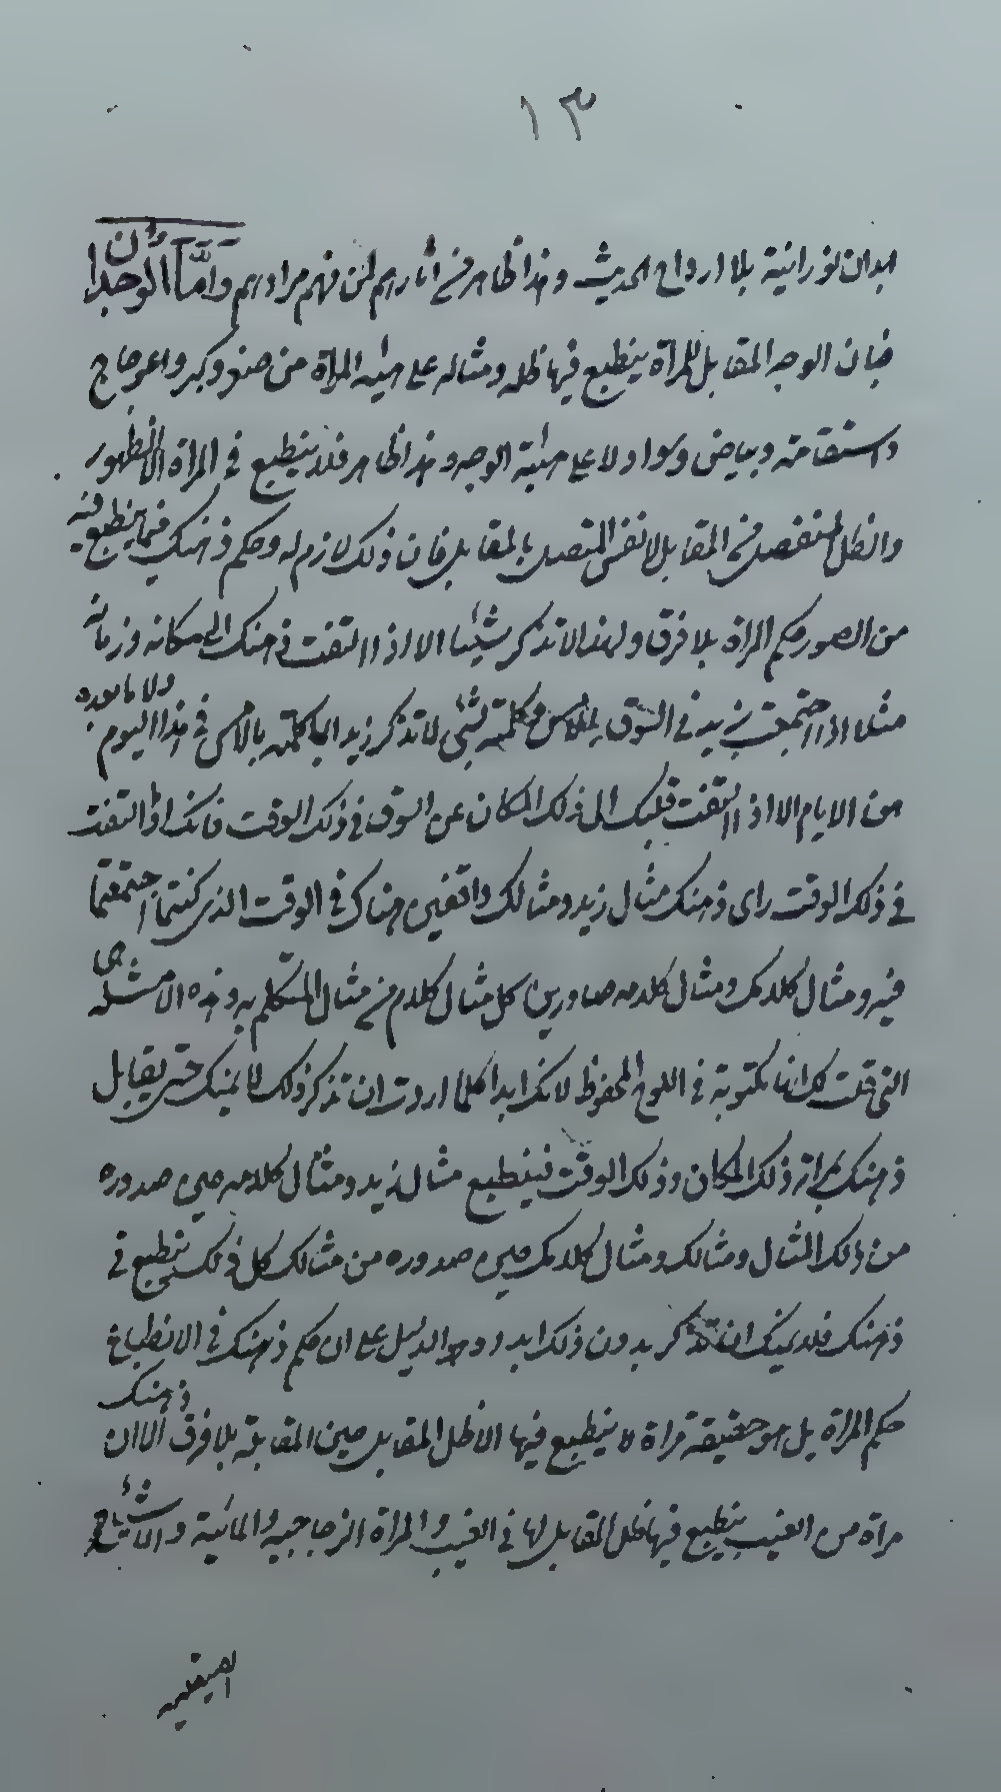 ١٣
ابدان نورانية بلا ارواح الحديث وهذا ظاهر في اثارهم لمن فهم مرادهم واما الوجدان
فبان الوجه المقابل للمرآة ينطبع فيها ظله ومثاله على هيئة المرآة من صغر وكبر واعوجاج
واستقامة وبياض وسواد لا على هيئة الوجه وهذا ظاهر فلا ينطبع في المرآة الا الظهور
والظل المنفصل من المقابل لا نفس المتصل بالمقابل فان ذلك لازم له وحكم ذهنك فيما ينطبع فيه
من الصور حكم المرآة بلا فرق ولهذا لا تذكر شيئا الا اذا التفت ذهنك الى مكانه وزمانه
مثلا اذا اجتمعت بزيد في السوق بالامس وكلمته بشئ لا تذكر زيدا ايا كلمته بالامس في هذا اليوم ولا ما بعده
من الايام الا اذا التفت قلبك الى ذلك المكان عن السوق في ذلك الوقت فانك اذا التفت
في ذلك الوقت راى ذهنك مثال زيد ومثالك واقفين هناك في الوقت الذي كنتما اجتمعتما
فيه ومثال كلامك ومثال كلامه صادرين كل مثال كلام من مثال المتكلم به وهذه الامثلة هي
التي قلت لك انها مكتوبة في اللوح المحفوظ لانك ابدا كلما اردت ان تذكر ذلك لا يمكنك حتى يقابل
ذهنك بمرآته ذلك المكان وذلك الوقت فينطبع مثال زيد ومثال كلامه حين صدوره
من ذلك المثال ومثالك ومثال كلامك حين صدوره من مثالك كل ذلك ينطبع في
ذهنك فلا يمكنك ان تذكر بدون ذلك ابدا وهو الدليل على ان حكم ذهنك في الانطباع
حكم المرآة بل هو حقيقة مرآة لا ينطبع فيها الا ظل المقابل حين المقابلة بلا فرق الا ان ذهنك
مرآة من الغيب ينطبع فيها ظل المقابل لها في الغيب والمرآة الزجاجية والمائية والاشياء
الصيقلية